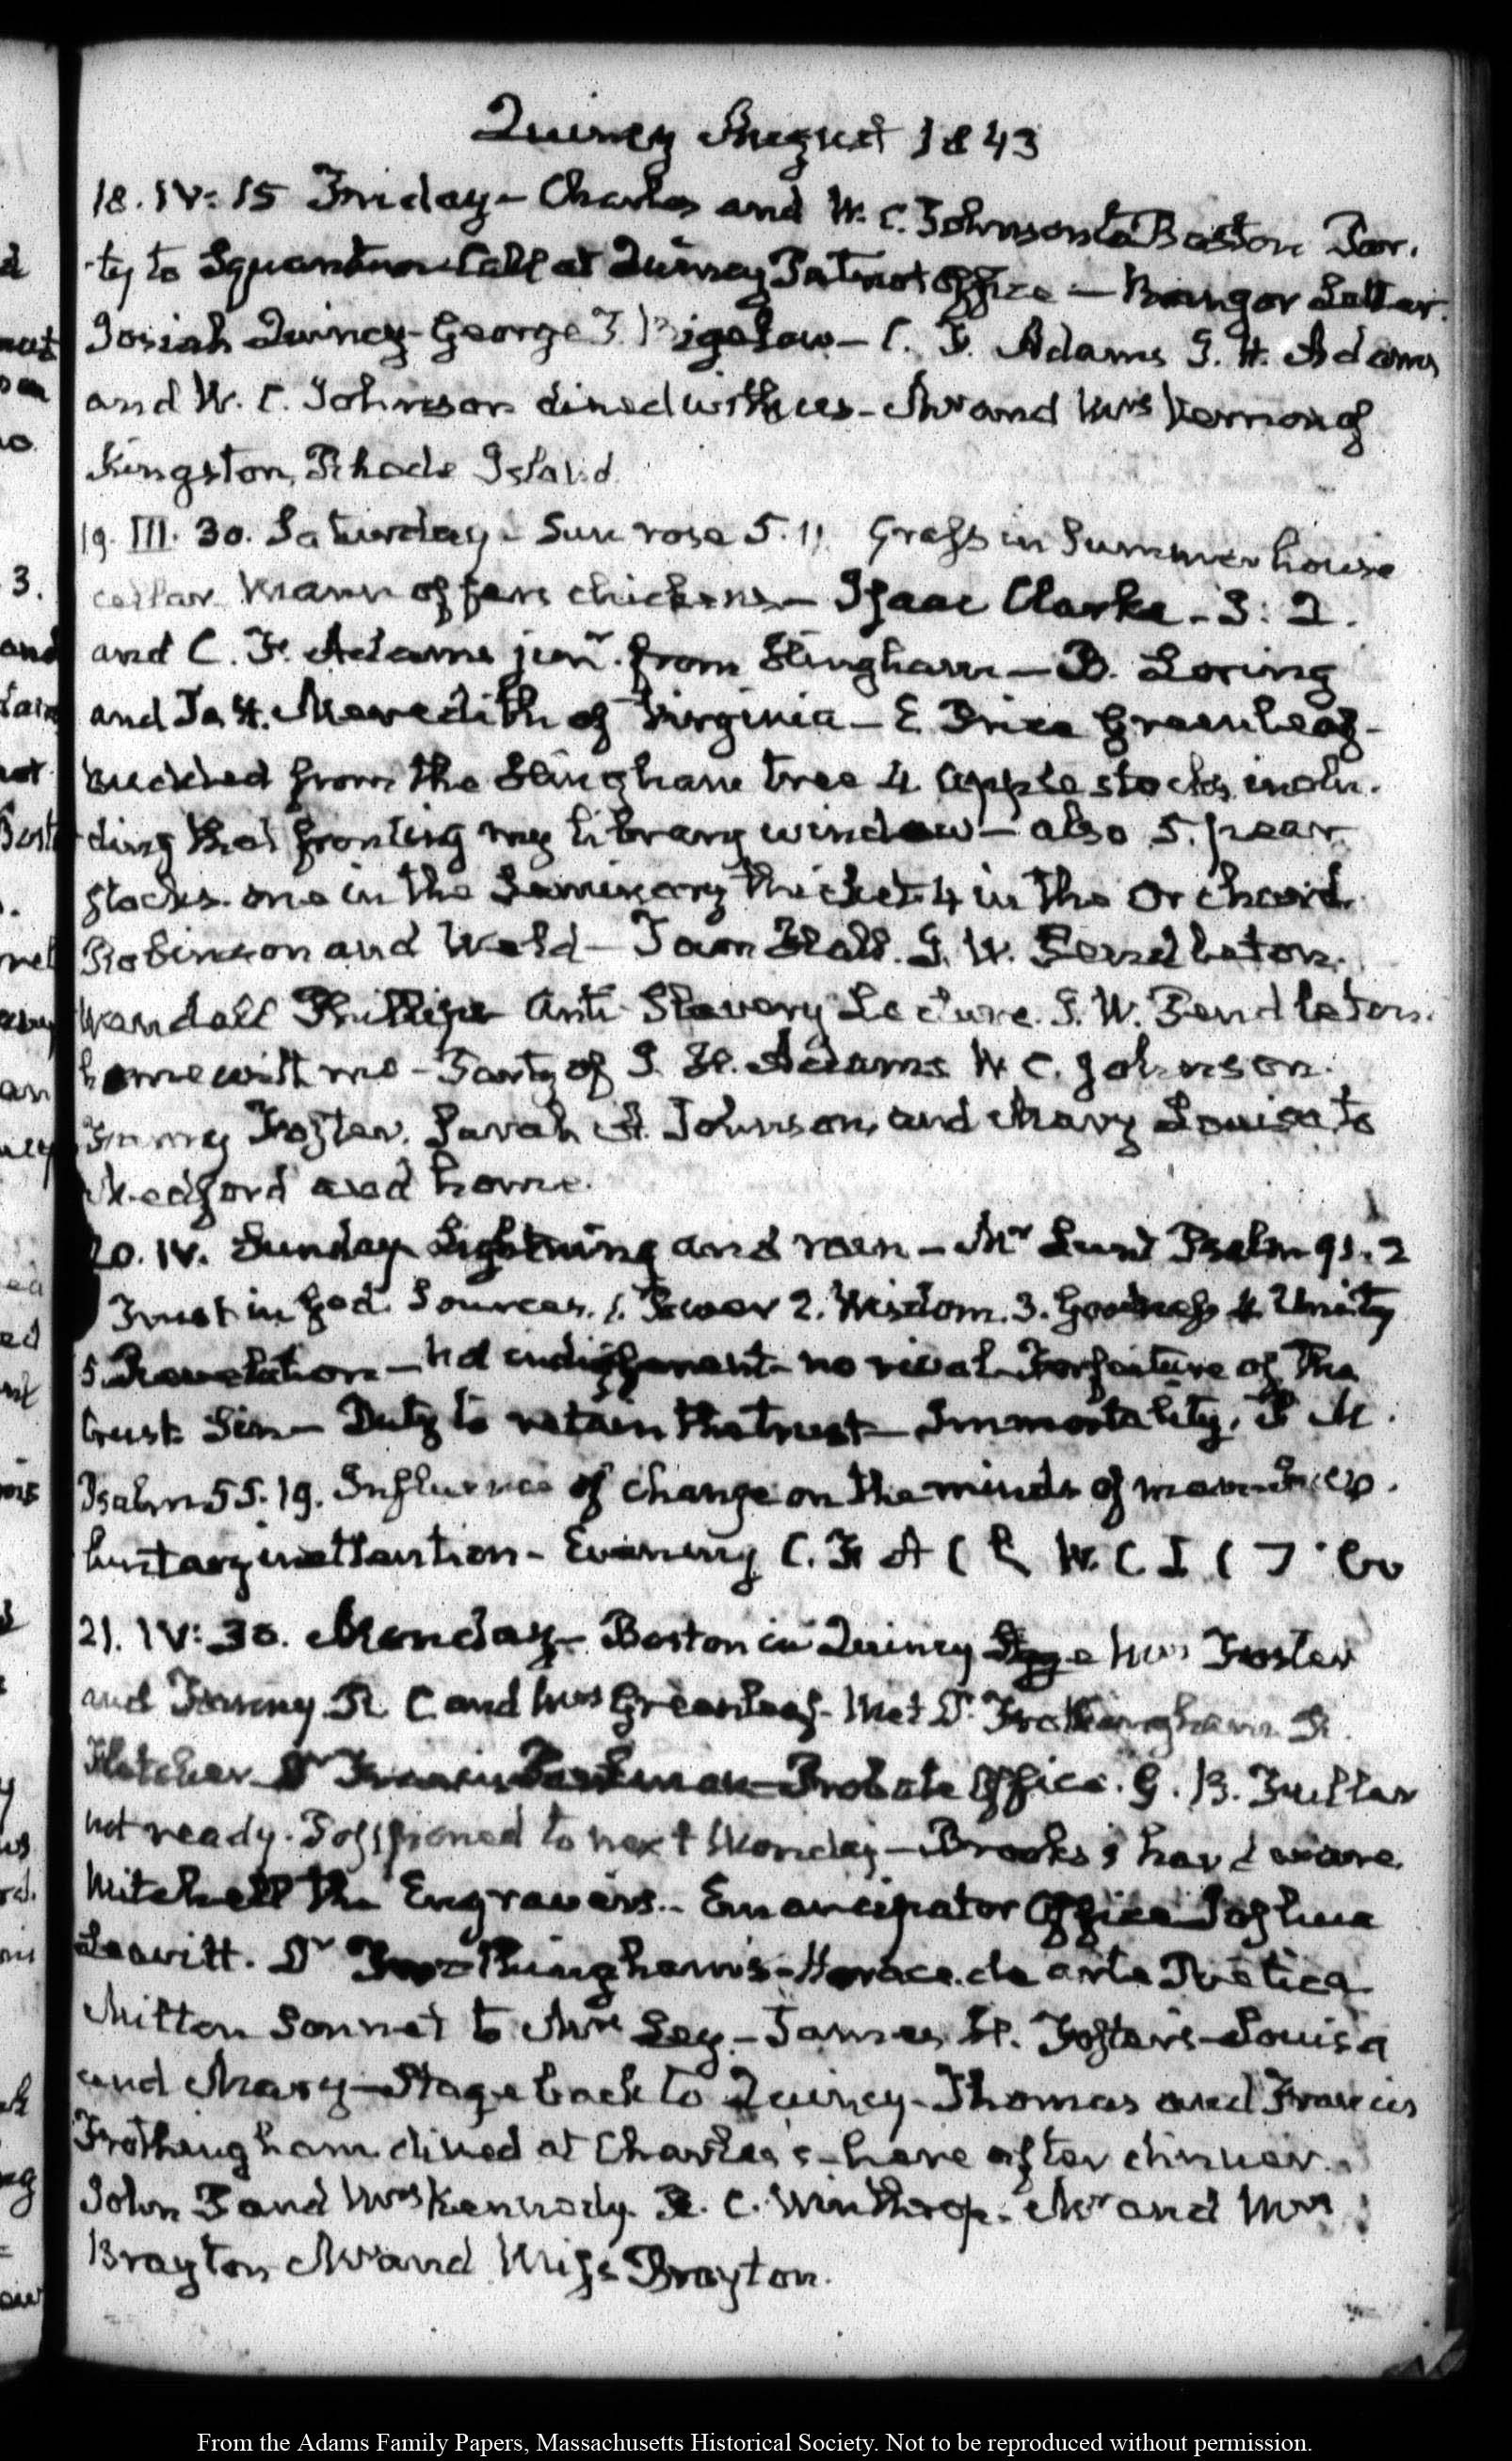 Quincy August 1843
18. IV: 15 Friday – Charles and W. C. Johnson to Boston Par-
ty to Squantum Call at Quincy Patriot Office – Bangor Letter.
Josiah Quincy – George T. Bigelow – C. F. Adams I. H. Adams
and W. C. Johnson dined with us – Mr and Mrs Vernon of
Kingston, Rhode Island
19. III. 30. Saturday – Sun rose 5.11 Grass in Summer house
cellar. Mann of fern chickens – Isaac Clarke – J: Q.
and C. F. Adams junr. from Hingham – B. Loring
and Ja H. Meredith of Virginia – E Price Greenleaf –
budded from the Hingham tree 4 apple stocks, inclu-
ding that fronting my library window – also 5. pear
stocks. one in the Seminary thicket 4 in the Orchard.
Robinson and Weld – Town Hall. G. W. Pendleton.
Wendell Phillips Anti Slavery Lecture. G. W. Pendleton.
home with me – Party of I. H. Adams W. C. Johnson.
Fanny Foster. Sarah A. Johnson, and Mary Louisa to
Medford and home.
20. IV. Sunday Lightning and rain – Mr Lunt Psalm 91. 2
Trust in God. Sources. 1. Power 2. Wisdom. 3. Goodness 4 Unity
5. Revelation – no rival Forfeiture of the
trust Sin – Duty to retain the trust – Immortality. P. M.
Psalm 55. 19. Influence of change on the minds of men
inattention – Evening C. F. A W. C J
21. IV: 30. Monday – Boston in Quincy Stage Mrs Foster
and Fanny. R. C and Mrs Greenleaf – Met Dr Frothingham R.
Fletcher – Dr Francis Parkman – Probate Office. G. B. Fuller
not ready. Postponed to next Monday – Brooks's hard ware.
Mitchell the Engravers. – Emancipator Office Joshua
Leavitt. Dr Frothingham's – Horace. de arte Poetica
Milton Sonnet to Mrs Ley. – James H. Foster's – Louisa
and Mary – Stage back to Quincy – Thomas and Francis
Frothingham dined at Charles's – here after dinner.
John P and Mrs Kennedy. R. C. Winthrop. Mr and Mrs
Brayton Mr and Miss Brayton.
From the Adams Family Papers, Massachusetts Historical Society. Not to be reproduced without permission.